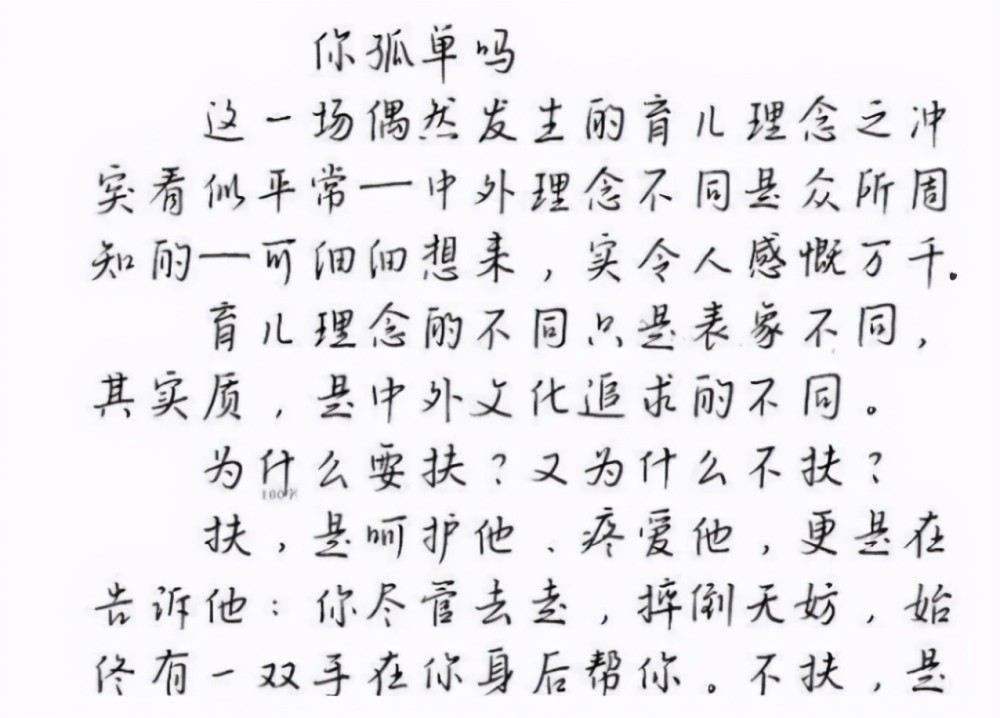 你孤单吗
这一场偶然发生的育儿理念之冲
突看似平常一中外理念不同是众所周
知的一可细细想来，实令人感慨万千.
育儿理念的不同只是表象不同，
其实质，是中外文化追求的不同。
为什么要扶？又为什么不扶？
100%
扶，是呵护他、疼爱他，更是在
告诉他：你尽管去走，摔倒无妨，始
终有一双手在你身后帮你。不扶，是